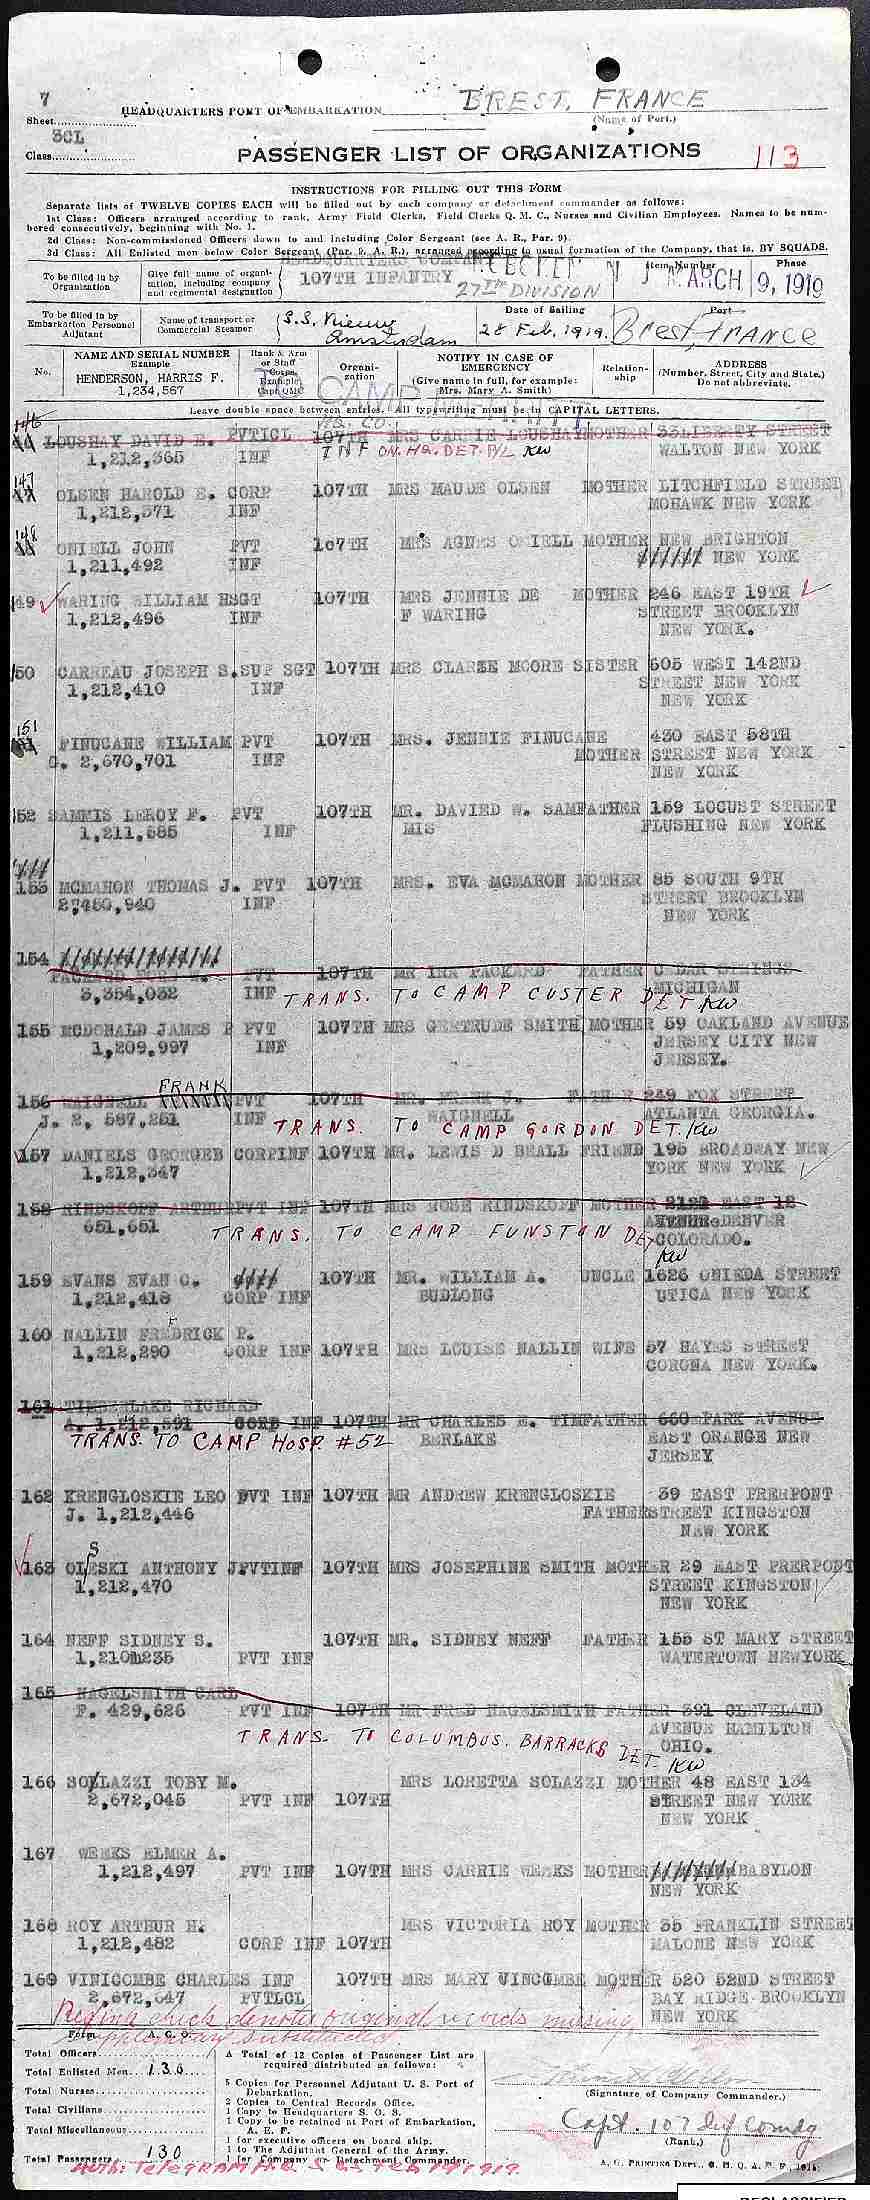 7
Sheet............
HEADQUARTERS PORT OF EMBARKATION
BREST, FRANCE
(Name of Port.)
3CL
Class............
PASSENGER LIST OF ORGANIZATIONS
113
INSTRUCTIONS FOR FILLING OUT THIS FORM
Separate lists of TWELVE COPIES EACH will be filled out by each company or detachment commander as follows:
1st Class: Officers arranged according to rank, Army Field Clerks, Field Clerks Q. M. C., Nurses and Civilian Employees. Names to be numbered consecutively, beginning with No. 1.
2d Class: Non-commissioned Officers down to and including Color Sergeant (see A. R., Par. 9).
3d Class: All Enlisted men below Color Sergeant (Par. 9, A. R.), arranged according to usual formation of the Company, that is, BY SQUADS.
To be filled in by Organization
Give full name of organization, including company and regimental designation
HEADQUARTERS COMPANY
107TH INFANTRY
27TH DIVISION
Item Number
Phase
MARCH 9, 1919
To be filled in by Embarkation Personnel Adjutant
Name of transport or Commercial Steamer
S.S. Nieuw Amsterdam
Date of Sailing
28 Feb. 1919.
Port
Brest, FRANCE
No.
NAME AND SERIAL NUMBER
Example
HENDERSON, HARRIS F.
1,234,567
Rank & Arm or Staff Corps
Example
Capt QMC
Organization
NOTIFY IN CASE OF EMERGENCY
(Give name in full, for example: Mrs. Mary A. Smith)
Relationship
ADDRESS
(Number, Street, City and State.)
Do not abbreviate.
TO CAMP
Leave double space between entries. All typewriting must be in CAPITAL LETTERS.
146 LOUSHAY DAVID E. PVT1CL 107TH MRS CARRIE LOUSHAY MOTHER 33 LIBERTY STREET
1,212,365 INF INF ON. HQ. DET. P/L KW WALTON NEW YORK
147 OLSEN HAROLD E. CORP 107TH MRS MAUDE OLSEN MOTHER LITCHFIELD STREET
1,212,571 INF MOHAWK NEW YORK
148 ONIELL JOHN PVT 107TH MRS AGNES ONIELL MOTHER NEW BRIGHTON
1,211,492 INF NEW YORK
149 WARING WILLIAM H SGT 107TH MRS JENNIE DE MOTHER 246 EAST 19TH
1,212,496 INF F WARING STREET BROOKLYN
NEW YORK.
150 CARREAU JOSEPH S. SUP SGT 107TH MRS CLARE MOORE SISTER 605 WEST 142ND
1,212,410 INF STREET NEW YORK
NEW YORK
151 FINUCANE WILLIAM PVT 107TH MRS. JENNIE FINUCANE 430 EAST 58TH
G. 2,670,701 INF MOTHER STREET NEW YORK
NEW YORK
152 SAMMIS LEROY F. PVT 107TH MR. DAVIED W. SAM FATHER 159 LOCUST STREET
1,211,585 INF MIS FLUSHING NEW YORK
153 MCMAHON THOMAS J. PVT 107TH MRS. EVA MCMAHON MOTHER 85 SOUTH 9TH
2,450,940 INF STREET BROOKLYN
NEW YORK
154
PACKARD PVT 107TH MR IRA PACKARD FATHER CEDAR SPRINGS
3,354,032 INF TRANS. TO CAMP CUSTER DET KW MICHIGAN
155 MCDONALD JAMES P PVT 107TH MRS GERTRUDE SMITH MOTHER 59 OAKLAND AVENUE
1,209,997 INF JERSEY CITY NEW
JERSEY.
FRANK
156 WAIGNELL PVT 107TH MR. FRANK J. FATHER 249 FOX STREET
J. 2, 587,251 INF WAIGNELL ATLANTA GEORGIA.
TRANS. TO CAMP GORDON DET. KW
157 DANIELS GEORGEB CORPINF 107TH MR. LEWIS D BEALL FRIEND 195 BROADWAY NEW
1,212,347 YORK NEW YORK
158 RINDSKOPF ARTHUR PVT INF 107TH MRS ROSE RINDSKOPF MOTHER EAST 12
651,651 AVENUE DENVER
COLORADO.
TRANS. TO CAMP FUNSTON DET KW
159 EVANS EVAN C. 107TH MR. WILLIAM A. UNCLE 1626 ONIEDA STREET
1,212,418 CORP INF BUDLONG UTICA NEW YORK
160 NALLIN FREDRICK P.
1,212,290 CORP INF 107TH MRS LOUISE NALLIN WIFE 57 HAYES STREET
CORONA NEW YORK.
161 TIMBERLAKE RICHARD
A. 1,212,591 CORP INF 107TH MR CHARLES E. TIM FATHER 660 PARK AVENUE
BERLAKE EAST ORANGE NEW
JERSEY
TRANS. TO CAMP HOSP. #52
162 KRENGLOSKIE LEO PVT INF 107TH MR ANDREW KRENGLOSKIE 39 EAST PRERPONT
J. 1,212,446 FATHER STREET KINGSTON
NEW YORK
S
163 OLESKI ANTHONY J PVTINF 107TH MRS JOSEPHINE SMITH MOTHER 29 EAST PRERPONT
1,212,470 STREET KINGSTON
NEW YORK
164 NEFF SIDNEY S. 107TH MR. SIDNEY NEFF FATHER 155 ST MARY STREET
PVT INF WATERTOWN NEWYORK
165 NAGELSMITH CARL
F. 429,626 PVT INF 107TH MR FRED NAGELSMITH FATHER 391 CLEVELAND
AVENUE HAMILTON
OHIO.
TRANS. TO COLUMBUS. BARRACKS DET. KW
166 SOLLAZZI TOBY M. MRS LORETTA SOLAZZI MOTHER 48 EAST 134
2,672,045 PVT INF 107TH STREET NEW YORK
NEW YORK
167 WEEKS ELMER A.
1,212,497 PVT INF 107TH MRS CARRIE WEEKS MOTHER BABYLON
NEW YORK
168 ROY ARTHUR H. MRS VICTORIA ROY MOTHER 35 FRANKLIN STREET
1,212,482 CORP INF 107TH MALONE NEW YORK
169 VINICOMBE CHARLES INF 107TH MRS MARY VINCOMBE MOTHER 520 52ND STREET
2,672,047 PVT1CL BAY RIDGE BROOKLYN
NEW YORK
check denotes original records missing
substituted.
Form A. G. O.
Total Officers
Total Enlisted Men 130
Total Nurses
Total Civilians
Total Miscellaneous
Total Passengers 130
A Total of 12 Copies of Passenger List are required distributed as follows:
5 Copies for Personnel Adjutant U. S. Port of Debarkation.
2 Copies to Central Records Office.
1 Copy to Headquarters S. O. S.
1 Copy to be retained at Port of Embarkation, A. E. F.
1 for executive officers on board ship.
1 to The Adjutant General of the Army.
1 for Company or Detachment Commander.
(Signature of Company Commander.)
Capt. 107 Inf Comdg
(Rank.)
Auth: Telegram H.Q. S.O.S. Feb 19 1919.
A. G. PRINTING DEPT., G. H. Q., A. E. F., 1918.
DECLASSIFIED